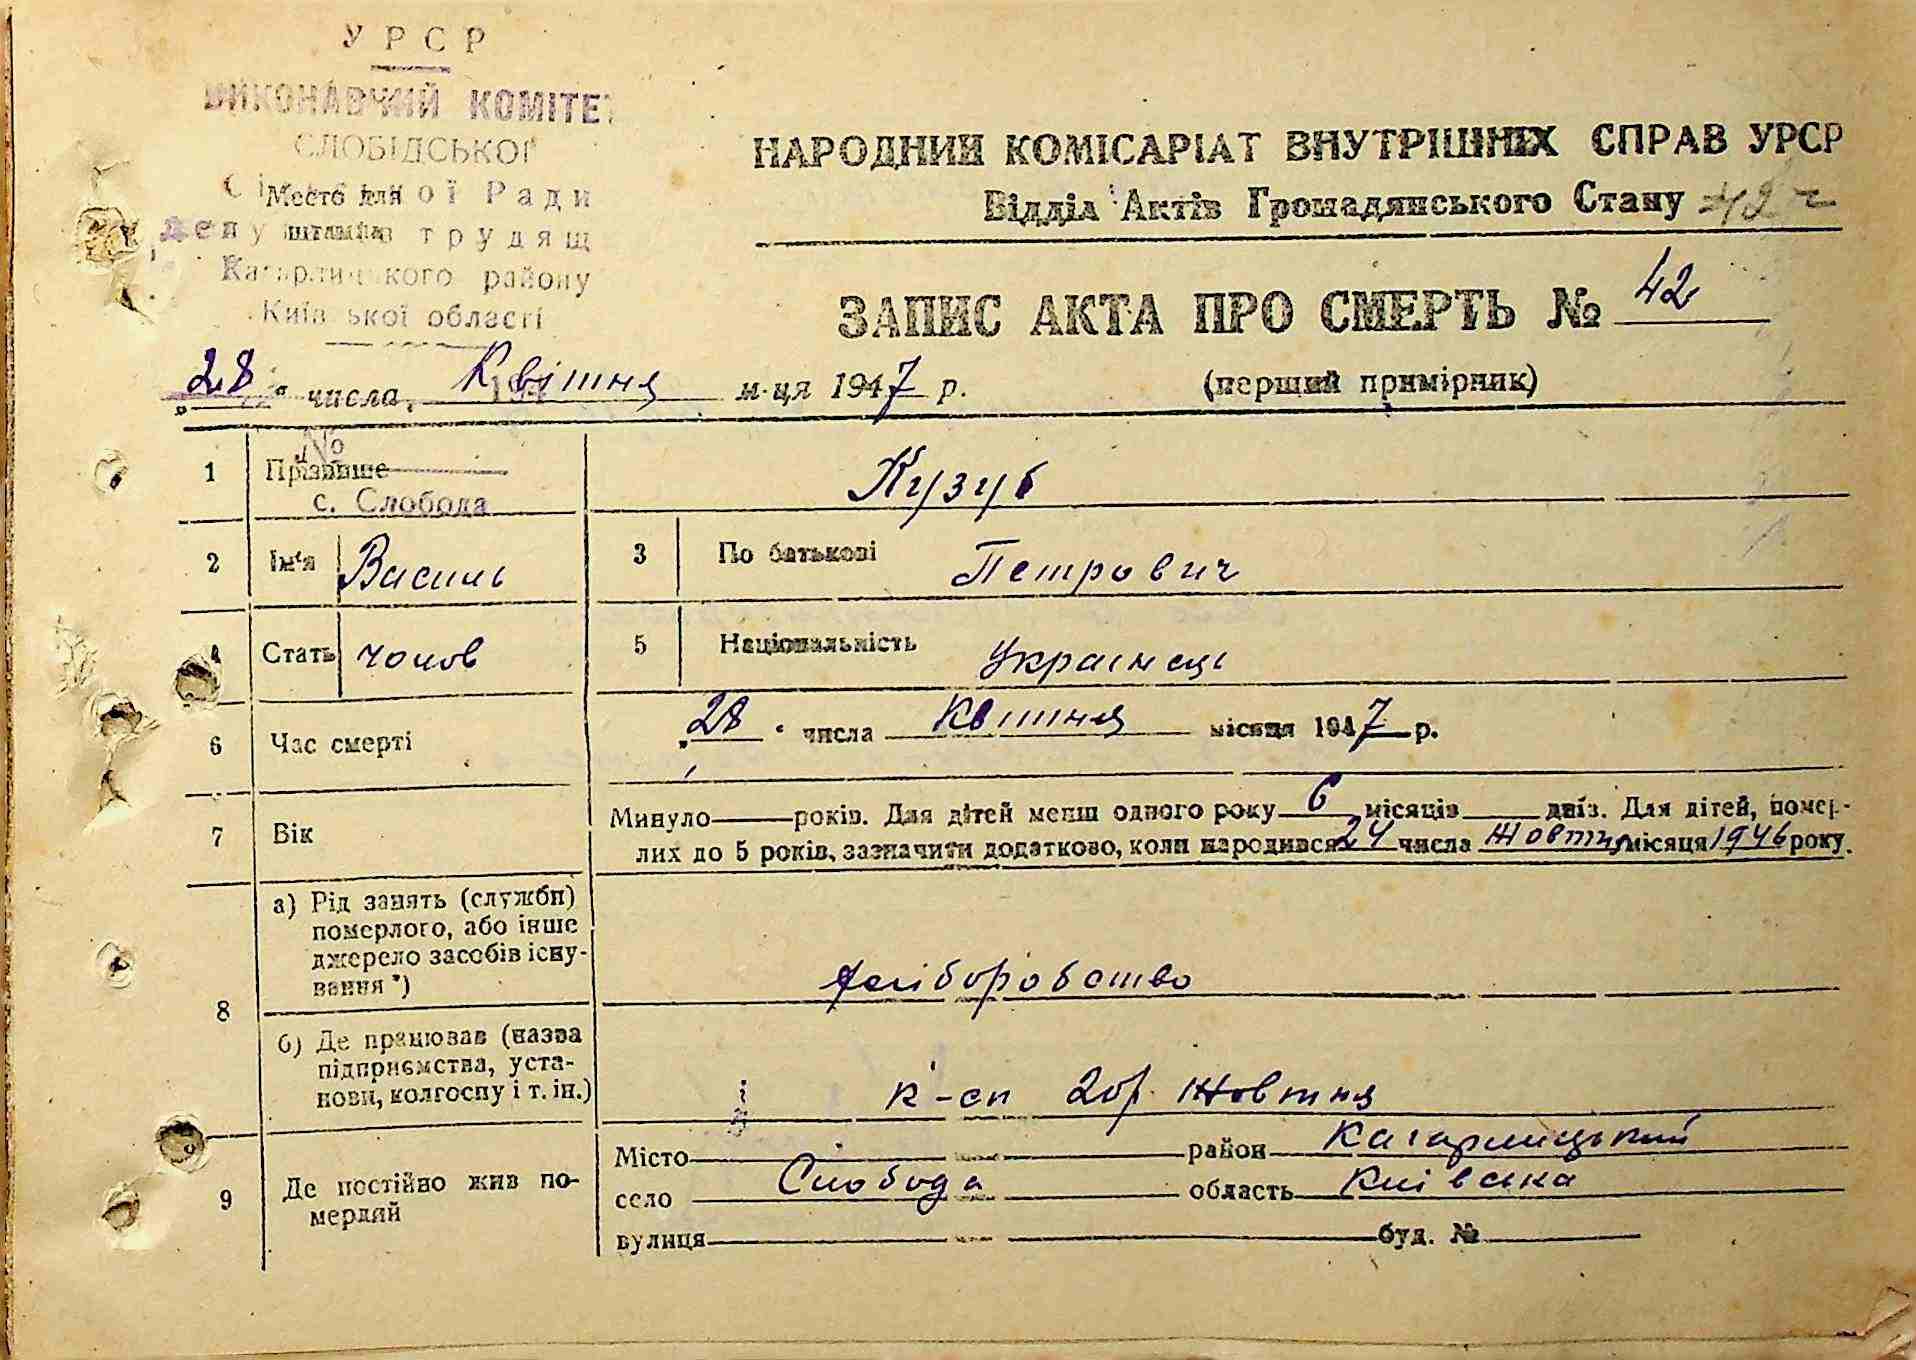 УРСР
ВИКОНАВЧИЙ КОМІТЕТ
СЛОБІДСЬКОЇ
Сільської Ради
Место для
штампа
депутатів трудящ
Кагарлицького району
Київської області
НАРОДНИЙ КОМІСАРІАТ ВНУТРІШНІХ СПРАВ УРСР
Відділ Актів Громадянського Стану
ЗАПИС АКТА ПРО СМЕРТЬ № 42
„28“ числа Квітня м-ця 1947 р.
(перщий примірник)
№
1 Прізвище Кузуб
с. Слобода
2 Ім'я Василь 3 По батькові Петрович
4 Стать чолов 5 Національність Українець
6 Час смерті „28“ числа Квітня місяця 1947 р.
7 Вік Минуло — років. Для дітей менш одного року 6 місяців днів. Для дітей, помер-
лих до 5 років, зазначити додатково, коли народився 24 числа Жовтня місяця 1946 року.
8 а) Рід занять (служби)
померлого, або інше
джерело засобів існу-
вання *) хліборобство
б) Де працював (назва
підприємства, уста-
нови, колгоспу і т. ін.) к-сп Жовтня
9 Де постійно жив по-
мерлий
Місто район Кагарлицький
село Слобода область Київська
вулиця буд. №